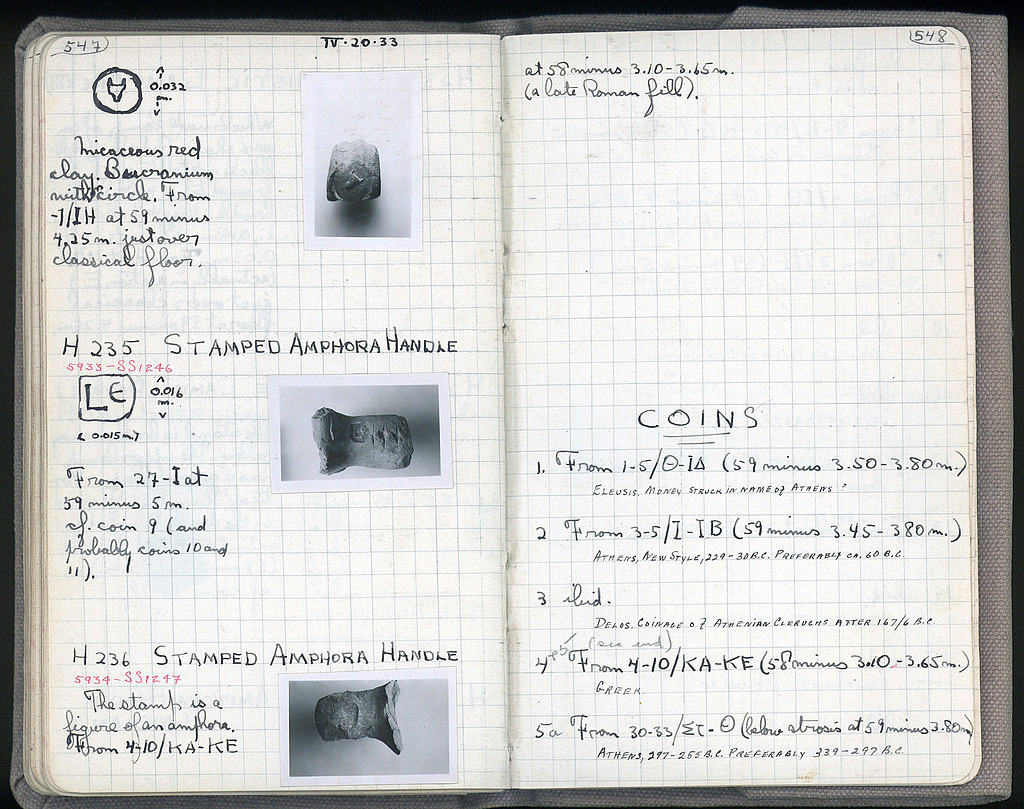 547
IV·20·33
0.032
m.
Micaceous red
clay. Bucranium
with circle. From
-1/IH at 59 minus
4.25 m. just over
classical floor.
H 235 STAMPED AMPHORA HANDLE
5933-SS1246
LE
0.016
m.
< 0.015 m. >
From 27-I at
59 minus 5 m.
cf. coin 9 (and
probably coins 10 and
11).
H 236 STAMPED AMPHORA HANDLE
5934-SS1247
The stamp is a
figure of an amphora.
From 4-10/KA-KE
548
at 58 minus 3.10-3.65 m.
(a late Roman fill).
COINS
1. From 1-5/Θ-ΙΔ (59 minus 3.50-3.80 m.)
ELEUSIS, MONEY STRUCK IN NAME OF ATHENS ?
2 From 3-5/I-IB (59 minus 3.45-380 m.)
ATHENS, NEW STYLE, 229-30 B.C. PREFERABLY CA. 60 B.C.
3 ibid.
DELOS. COINAGE OF ATHENIAN CLERUCHS AFTER 167/6 B.C.
(see end)
4 From 4-10/KA-KE (58 minus 3.10-3.65 m.)
GREEK.
5a From 30-33/ΣΤ-Θ (below strosis at 59 minus 3.80 m)
ATHENS, 297-255 B.C. PREFERABLY 339-297 B.C.